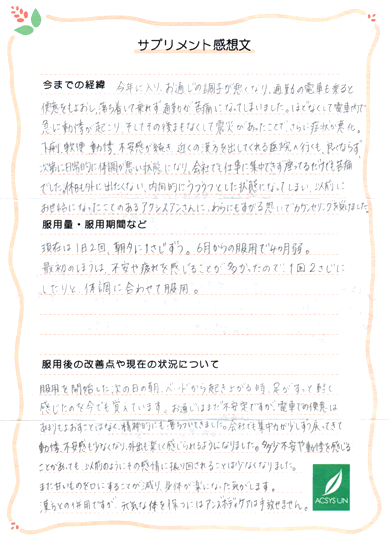 サプリメント感想文
今までの経緯 今年に入り、お通じの調子が悪くなり、通勤の電車も乗ると
便意をもよおし、落ち着いて乗れず通勤が苦痛になってしまいました。ほどなくして電車内で
急に動悸が起こり、そしてその後まもなくして震災があったことで、さらに症状が悪化。
下痢、軟便、動悸、不安感が続き、近くの漢方を出してくれる医院へ行くも、良くならず、
次第に日常的に体調が悪い状態になり、会社でも仕事に集中できず座ってるだけでも苦痛
でした。休日も外に出たくない、内向的にうつうつとした状態になってしまい、以前に
お世話になったことのあるアクシスアンさんに、わらにもすがる思いでカウンセリングを受けました。
服用量・服用期間など
現在は1日2回、朝夕に1さじずつ。6月からの服用で4ヵ月弱。
最初のほうは、不安や疲れを感じることが多かったので、1回2さじに
したりと、体調に合わせて服用。
服用後の改善点や現在の状況について
服用を開始した次の日の朝、ベッドから起き上がる時、体がすっと軽く
感じたのを今でも覚えています。お通じはまだ不安定ですが、電車での便意は
あまりもよおすことはなく、精神的にも落ちついてきました。会社でも集中力が少しずつ戻ってきて
動悸、不安感も少なくなり、外出も楽しく感じられるようになりました。多少不安や動悸を感じる
ことがあっても、以前のようにその感情に振り回されることは少なくなりました。
また甘いものを口にすることが減り、身体が楽になった気がします。
漢方との併用ですが、元気な体を保つにはアンズボディケアは手放せません。
ACSYS UN